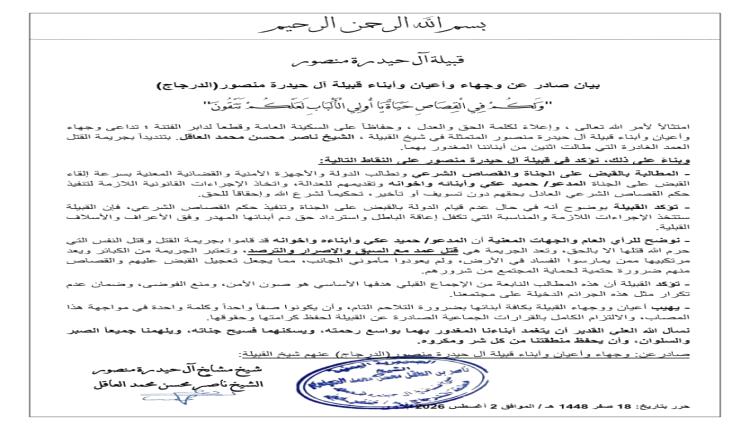 بسم الله الرحمن الرحيم
قبيلة آل حيدرة منصور
بيان صادر عن وجهاء وأعيان وأبناء قبيلة آل حيدرة منصور (الدرجاج)
"وَلَكُمْ فِي الْقِصَاصِ حَيَاةٌ يَا أُولِي الْأَلْبَابِ لَعَلَّكُمْ تَتَّقُونَ"
امتثالاً لأمر الله تعالى ، وإعلاءً لكلمة الحق والعدل ، وحفاظاً على السكينة العامة وقطعاً لدابر الفتنة ؛ تداعى وجهاء
وأعيان وأبناء قبيلة آل حيدرة منصور المتمثلة في شيخ القبيلة ، الشيخ ناصر محسن محمد العاقل. بتنديداً بجريمة القتل
العمد الغادرة التي طالت اثنين من أبناننا المغدور بهما.
وبناءً على ذلك، نؤكد في قبيلة آل حيدرة منصور على النقاط التالية:
- المطالبة بالقبض على الجناة والقصاص الشرعي ونطالب الدولة والأجهزة الأمنية والقضائية المعنية بسرعة إلقاء
القبض على الجناة المدعو/ حميد عكي وأبنانه وإخوانه وتقديمهم للعدالة، واتخاذ الإجراءات القانونية اللازمة لتنفيذ
حكم القصاص الشرعي العادل بحقهم دون تسويف أو تأخير، تحكيماً لشرع الله وإحقاقاً للحق.
- تؤكد القبيلة بوضوح أنه في حال عدم قيام الدولة بالقبض على الجناة وتنفيذ حكم القصاص الشرعي، فإن القبيلة
ستتخذ الإجراءات اللازمة والمناسبة التي تكفل إعاقة الباطل واسترداد حق دم أبنائها المهدر وفق الأعراف والأسلاف
القبلية.
- نوضح للرأي العام والجهات المعنية أن المدعو/ حميد عكي وأبناءه وإخوانه قد قاموا بجريمة القتل وقتل النفس التي
حرم الله قتلها الا بالحق، وتعد الجريمة هي قتل عمد مع السبق والاصرار والترصد، وتعتبر الجريمة من الكبائر ويعد
مرتكبيها ممن يمارسوا الفساد في الأرض، ولم يعودوا مأموني الجانب، مما يجعل تعجيل القبض عليهم والقصاص
منهم ضرورة حتمية لحماية المجتمع من شرورهم.
- تؤكد القبيلة أن هذه المطالب النابعة من الإجماع القبلي هدفها الأساسي هو صون الأمن، ومنع الفوضى، وضمان عدم
تكرار مثل هذه الجرائم الدخيلة على مجتمعنا.
- يهيب أعيان ووجهاء القبيلة بكافة أبنائها بضرورة التلاحم التام، وأن يكونوا صفاً واحداً وكلمة واحدة في مواجهة هذا
المصاب، والالتزام الكامل بالقرارات الجماعية الصادرة عن القبيلة لحفظ كرامتها وحقوقها.
نسأل الله العلي القدير أن يتغمد أبناءنا المغدور بهما بواسع رحمته، ويسكنهما فسيح جناته، ويلهمنا جميعاً الصبر
والسلوان، وأن يحفظ منطقتنا من كل شر ومكروه.
صادر عن: وجهاء وأعيان وأبناء قبيلة آل حيدرة منصور (الدرجاج) عنهم شيخ القبيلة:
شيخ مشايخ آل حيدرة منصور
الشيخ ناصر محسن محمد العاقل
حرر بتاريخ: 18 صفر 1448 هـ / الموافق 2 أغسطس 2026